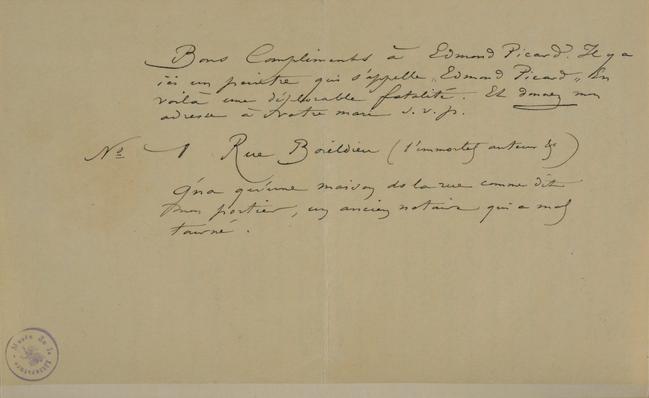 Bons Compliments à Edmond Picard. Il y a
ici un peintre qui s'appelle „Edmond Picard„ En
voilà une déplorable fatalité. Et donnez mon
adresse à Notre mari s.v.p.
Nº 1 Rue Boïeldieu (l'immortel auteur &)
Gn'a qu'une maison ds la rue comme dit
mon portier, un ancien notaire qui a mal
tourné.
Musée de la Littérature